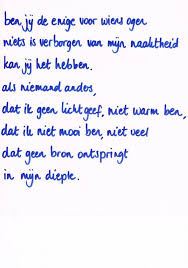 ben jij de enige voor wiens ogen
niets is verborgen van mijn naaktheid
kan jij het hebben.
als niemand anders,
dat ik geen licht geef, niet warm ben,
dat ik niet mooi ben, niet veel
dat geen bron ontspringt
in mijn diepte.